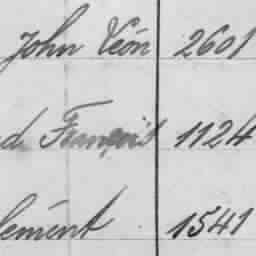 John Léon 2601
d. François 1124
lement 1541